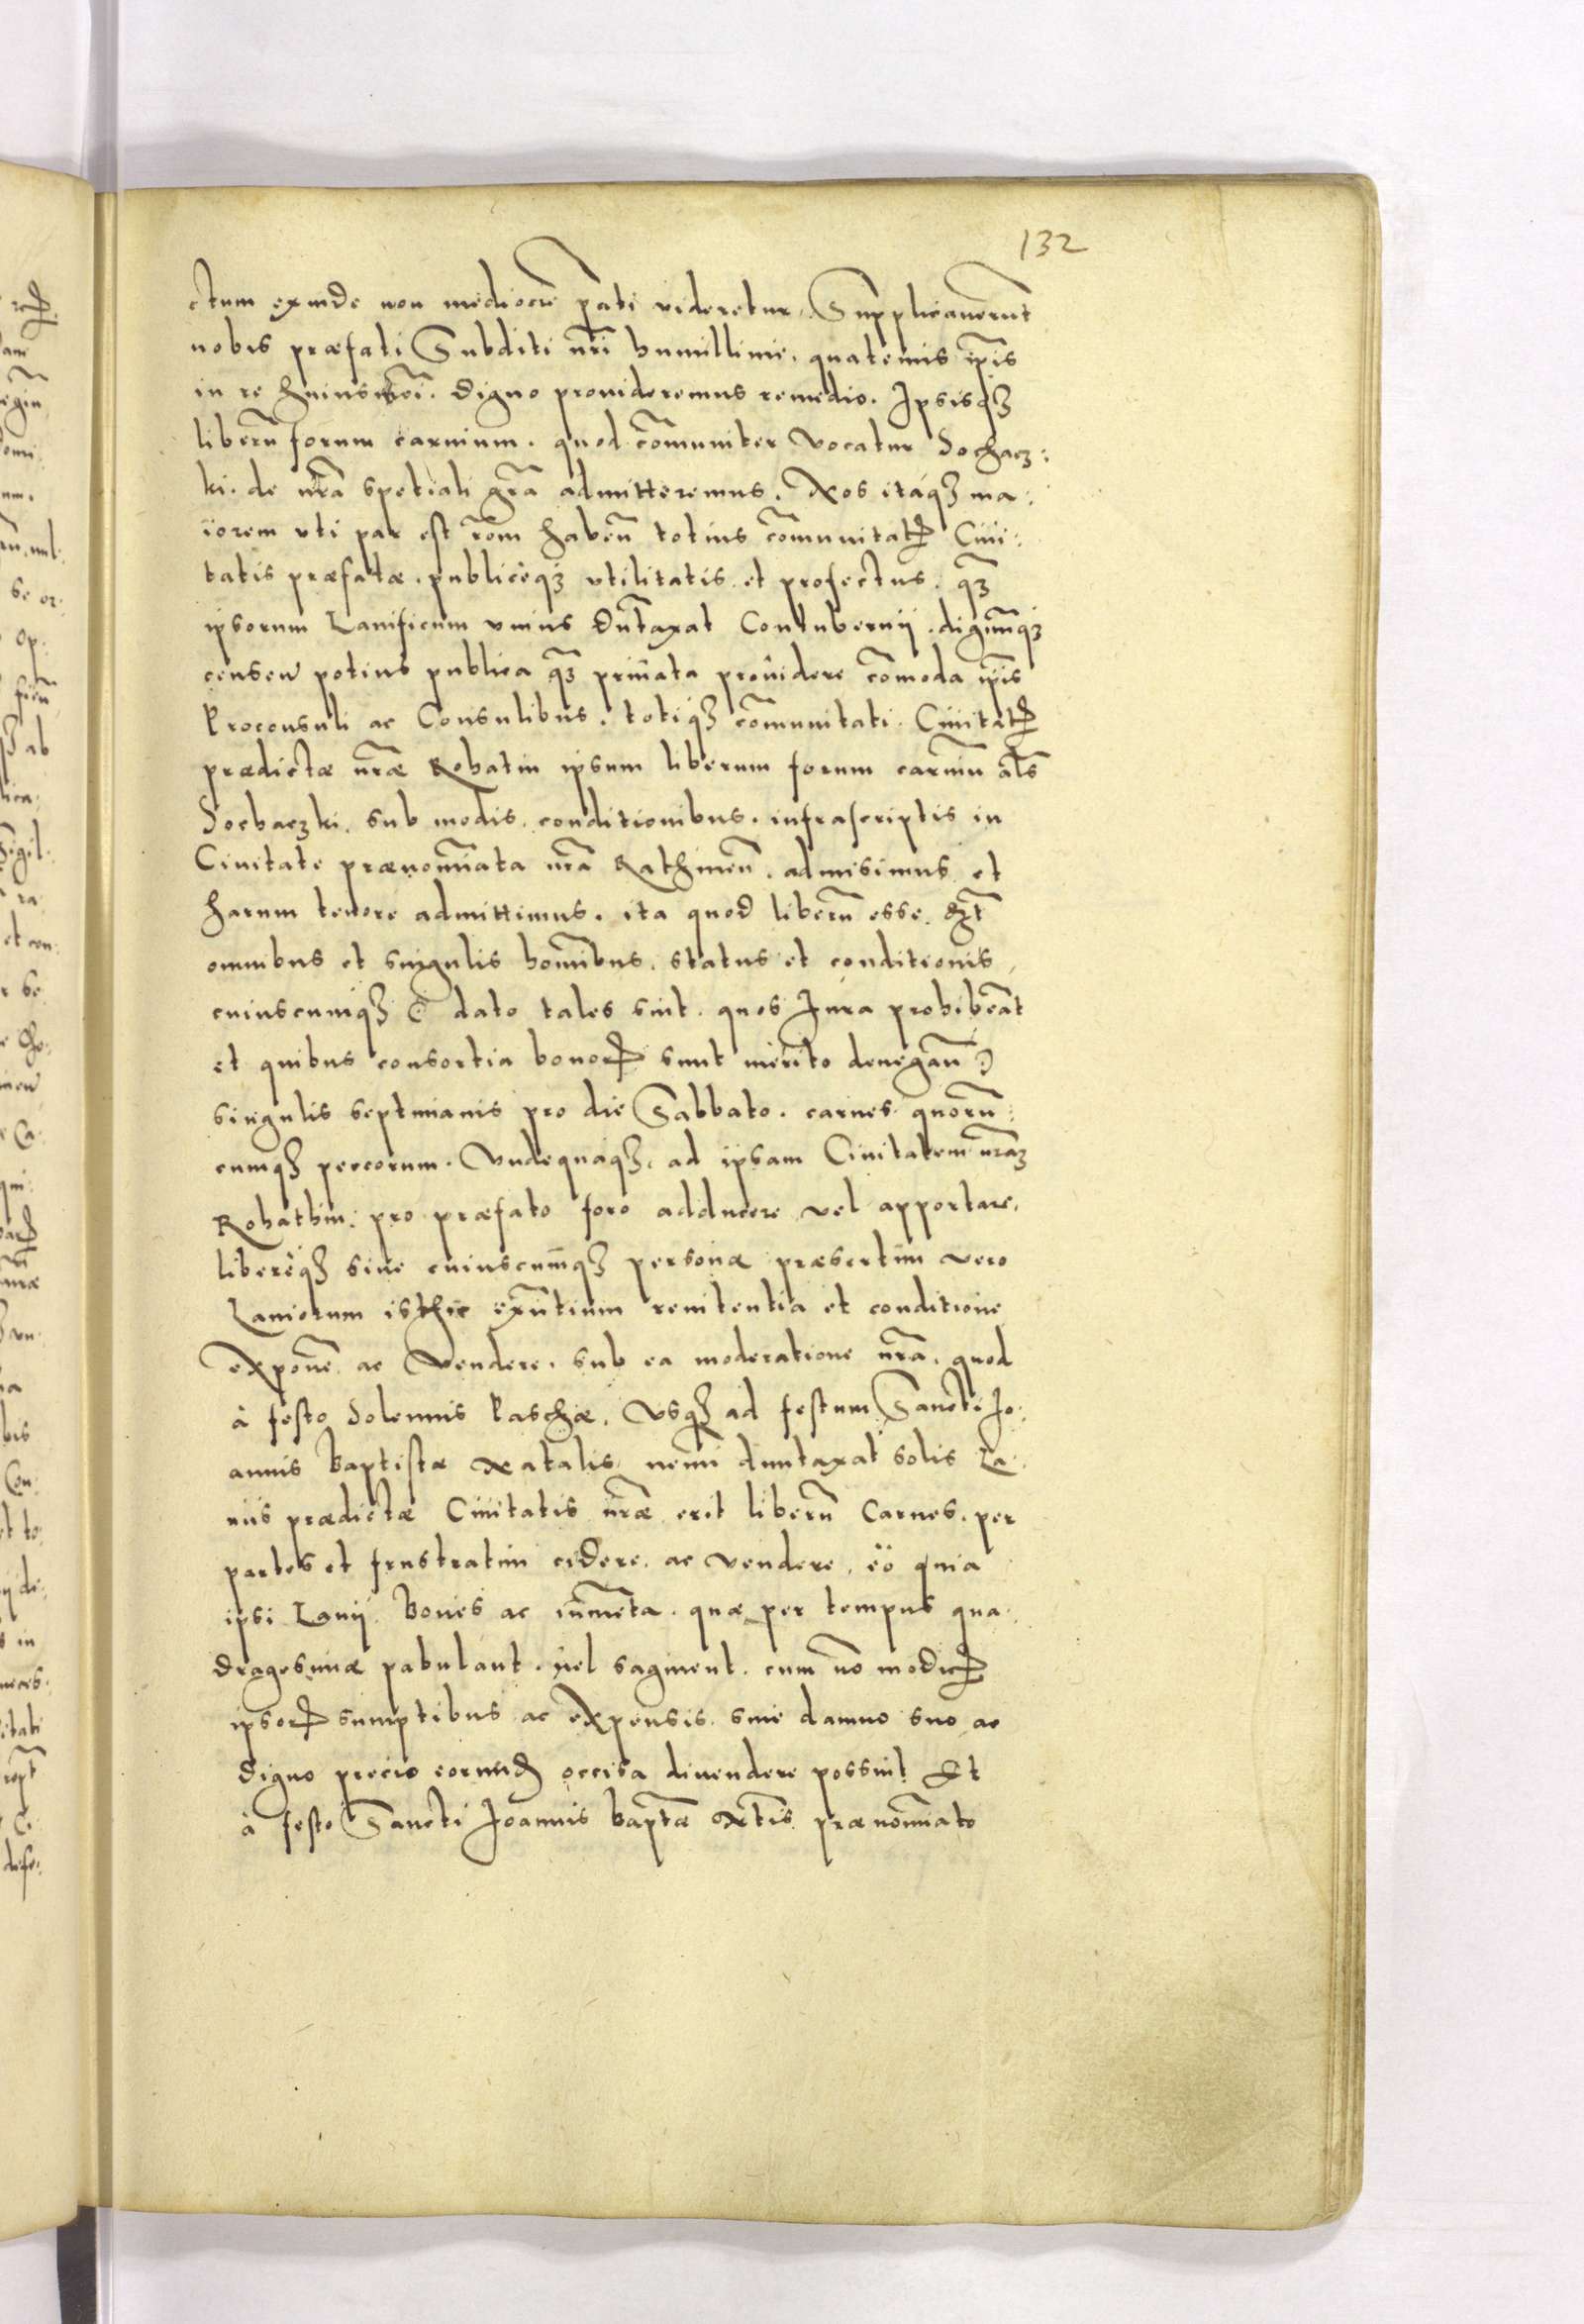 132
ctum exinde non mediocrē pati videretur. Supplicauerunt
nobis præfati Subditi nr̄i humillime. quatenus ip̄is
in re huiusmōi. digno prouideremus remedio. Ipsisqꝫ
liberū forum carnium. quod com̄uniter vocatur Sochacz:
ki. de nr̄a spetiali gr̄a admitteremus. Nos itáqꝫ ma:
iorem vti par est rōm habeñ totius com̄unitatꝭ Ciui:
tatis præfatæ. publicéqꝫ vtilitatis et profectus. qꝫ
ipsorum Lanificum vnius dūtaxat Contubernij. dignūqꝫ
censeñ potius publica qꝫ priuata prouidere com̄oda ip̄is
Proconsuli ac Consulibus. totiqꝫ com̄unitati Ciuitatꝭ
prædictæ nr̄æ Rohatin ipsum liberum forum carniū als̄
Sochaczki. sub modis. conditionibus. infrascriptis in
Ciuitate prænoīata nr̄a Rathineñ. admisimus et
harum tenore admittimus. ita quod liberū esse
omnibus et singulis hoībus. status et conditionis
cuiuscunqꝫ (dato tales sint. quos Iura prohibeāt
et quibus consortia bonoꝝ sunt merito denegañ)
singulis septimanis pro die Sabbato. carnes quorū:
cumqꝫ peccorum. Vndequaqꝫ. ad ipsam Ciuitatem nr̄aꝫ
Rohathin: pro præfato foro adducere vel apportare.
liberéqꝫ sine cuiuscumqꝫ personæ præsertim vero
Laniorum isthic exn̄tium renitentia et conditione
exponē ac Vendere. sub ea moderatione nr̄a. quod
à festo Solennis Paschæ. Vsqꝫ ad festum Sancti Jo:
annis Baptistæ Natalis nemini duntaxat solis La:
niis prædictæ Ciuitatis nr̄æ erit liberū Carnes. per
partes et frustratim cidere. ac vendere. eò quia
ipsi Lanij Boues ac iūmēta. quæ per tempus qua:
dragesimæ pabulant. vel saginent. cum nō modicꝭ
ipsoꝝ sumptibus ac expensis. sine damno suo ac
digno precio eorundꝫ occisa diuendere possint. Et
à festo Sancti Joannis Baptæ Nt̄lis prænoīato